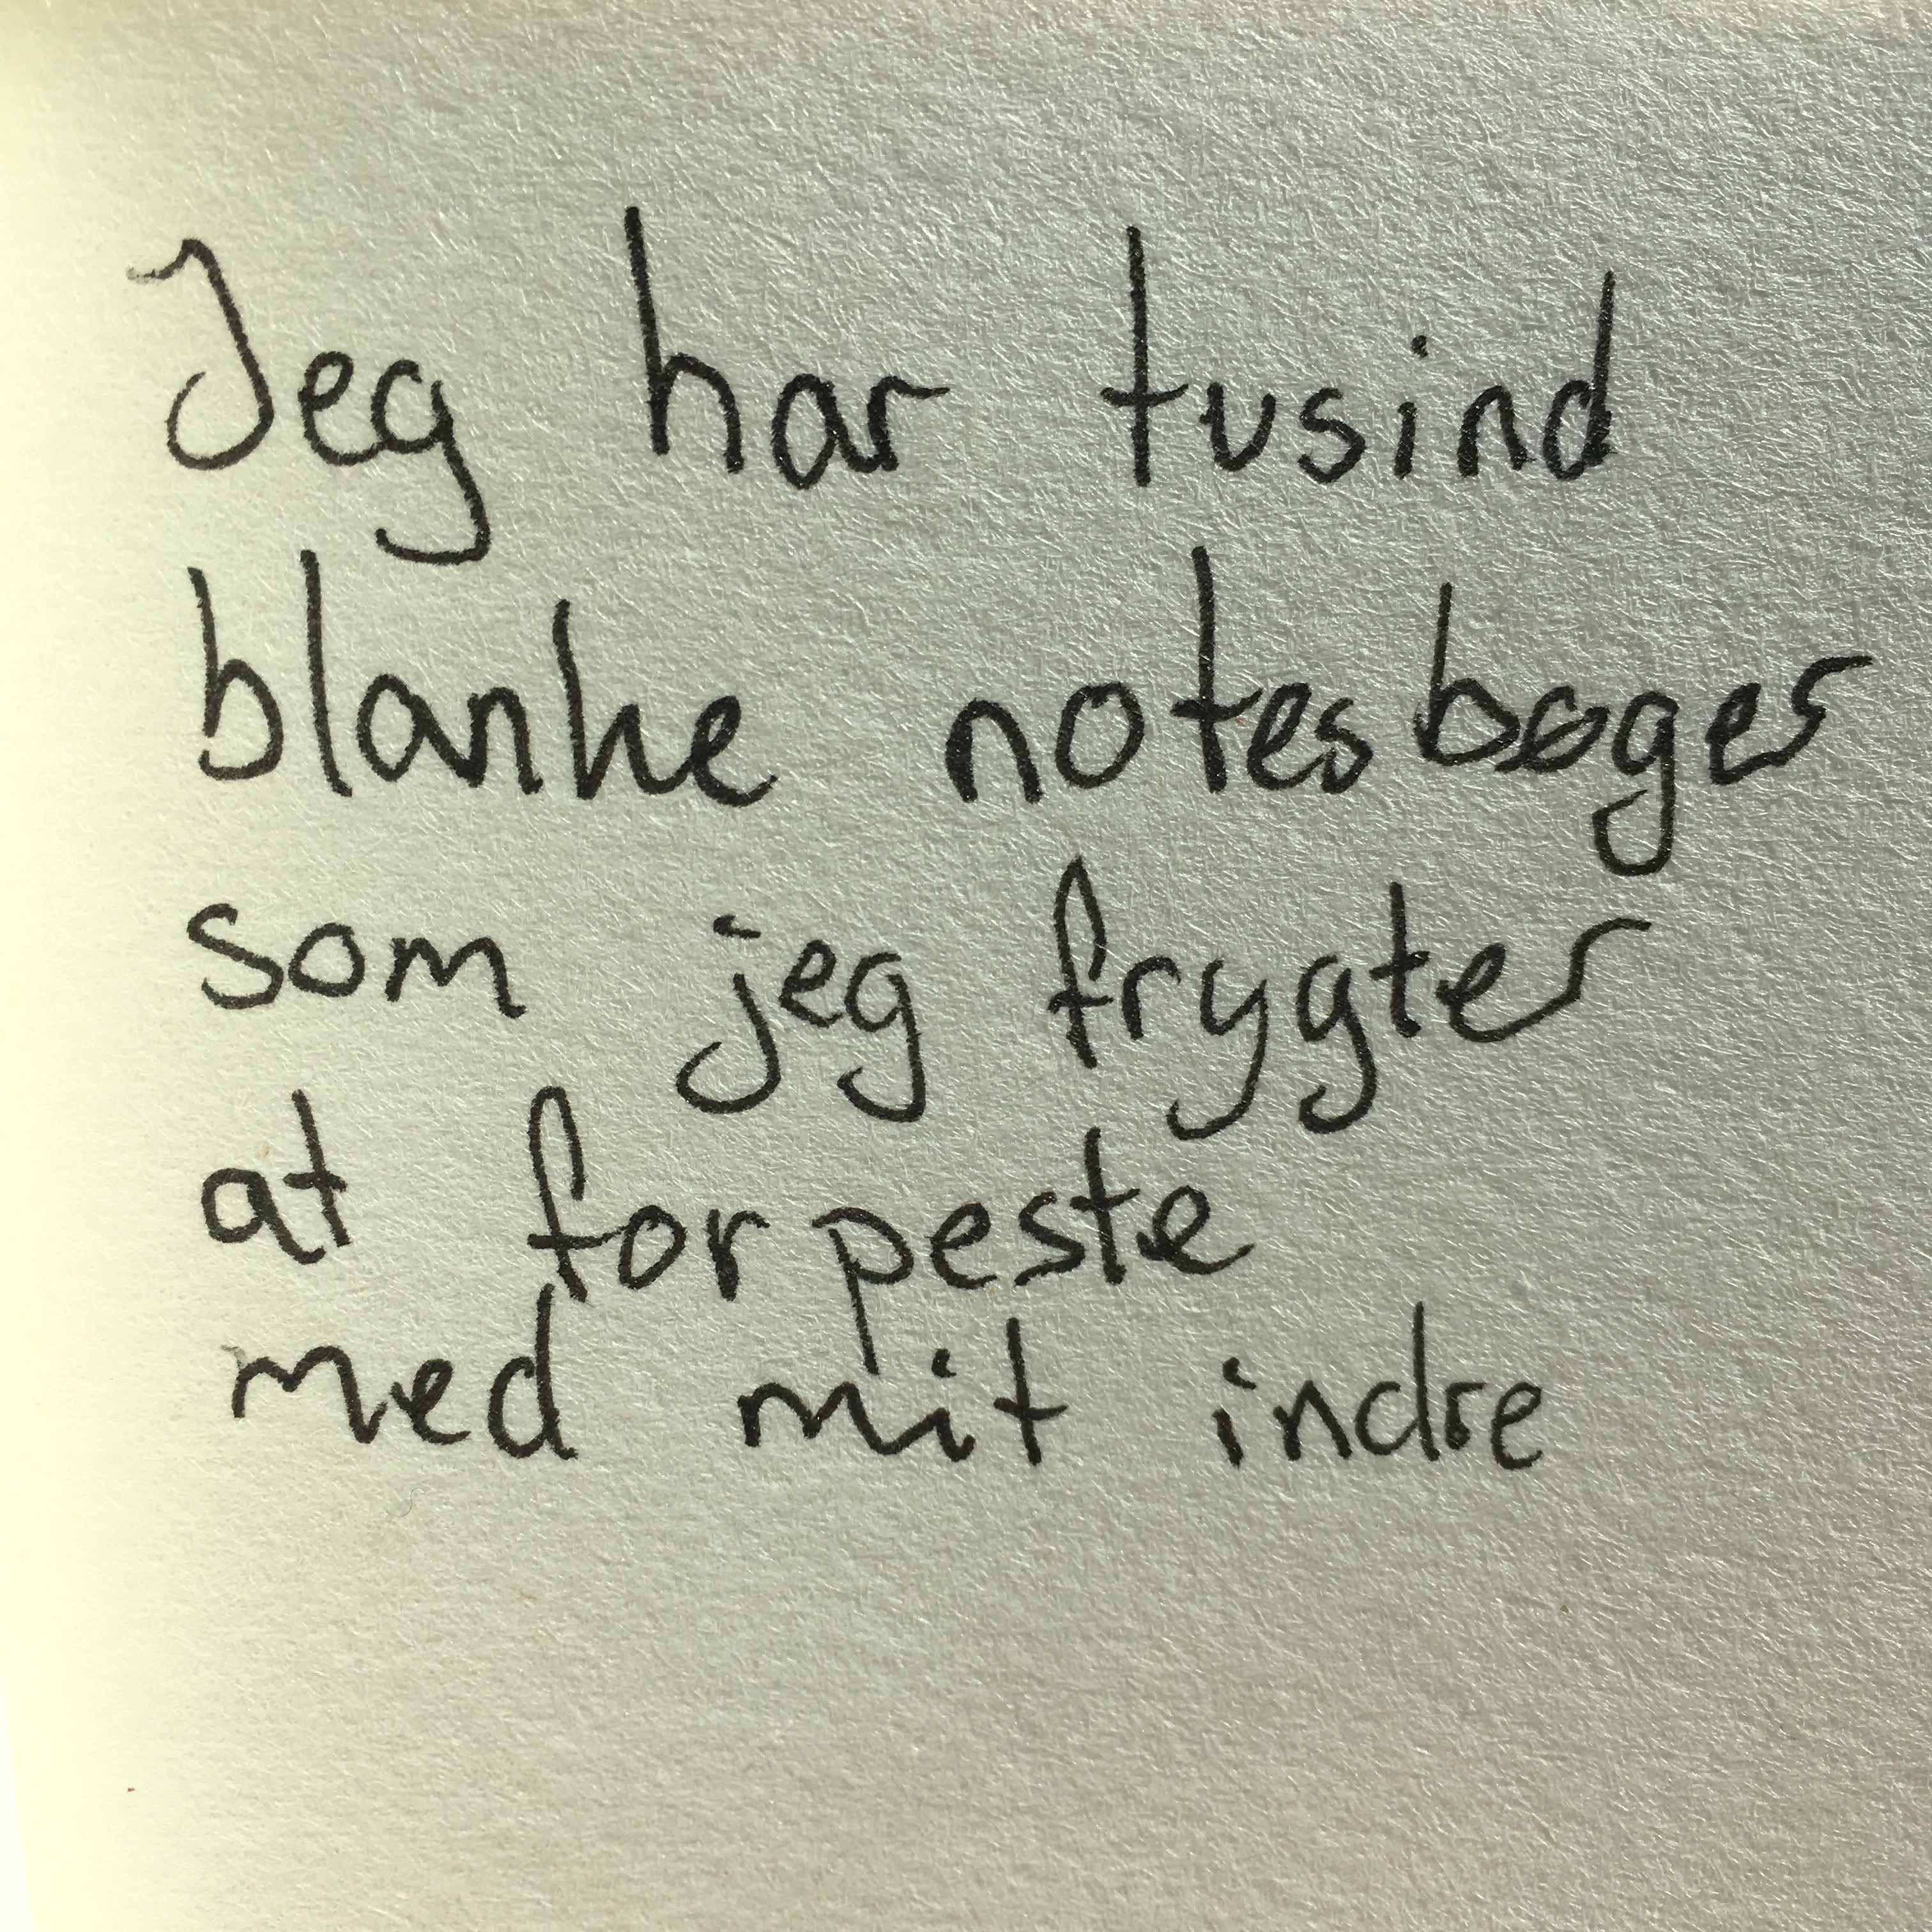 Jeg har tusind
blanke notesbøger
som jeg frygter
at forpeste
med mit indre